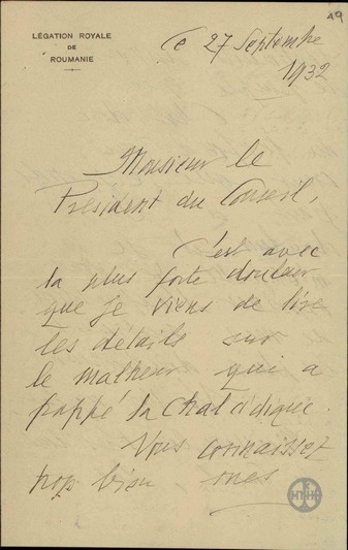 49
LÉGATION ROYALE
DE
ROUMANIE
Ce 27 Septembre
1932
Monsieur le
Président du Conseil,
C'est avec
la plus forte douleur
que je viens de lire
les détails sur
le malheur qui a
frappé la Chalcidique.
Vous connaissez
trop bien mes